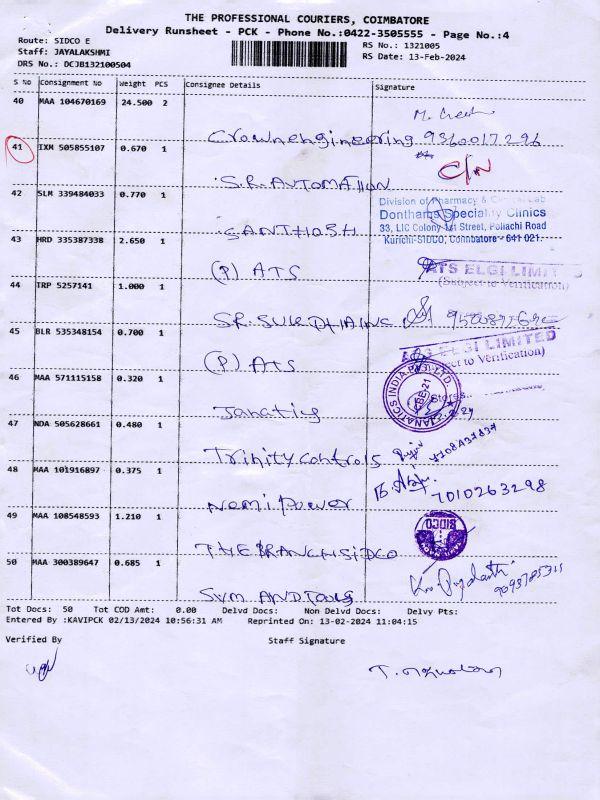 THE PROFESSIONAL COURIERS, COIMBATORE
Delivery Runsheet - PCK - Phone No.:0422-3505555 - Page No.:4
Route: SIDCO E
RS No.: 1321005
Staff: JAYALAKSHMI
RS Date: 13-Feb-2024
DRS No.: DCJB132100504
S No Consignment No Weight PCS Consignee Details Signature
40 MAA 104670169 24.500 2
Crownengineering 9360017296
41 IXM 505855107 0.670 1 C/N
S.R. AUTOMATION
42 SLM 339484033 0.770 1
Division of Pharmacy & Clinical Lab
Donthams Speciality Clinics
33, LIC Colony 1st Street, Pollachi Road
Kurichi-SIDCO, Coimbatore - 641 021.
SANTHOSH
43 HRD 335387338 2.650 1
ATS ELGI LIMITED
(Subject to Verification)
(P) ATS
44 TRP 5257141 1.000 1
45 BLR 535348154 0.700 1
ATS ELGI LIMITED
(Subject to Verification)
Stores
(P) ATS
46 MAA 571115158 0.320 1
JANATICS INDIA
47 NDA 505628661 0.480 1
Trinity controls
48 MAA 101916897 0.375 1
7010263298
Nemi Power
49 MAA 108548593 1.210 1
SIDCO
THE BRANCH SIDCO
50 MAA 300389647 0.685 1
Tot Docs: 50 Tot COD Amt: 0.00 Delvd Docs: Non Delvd Docs: Delvy Pts:
Entered By :KAVIPCK 02/13/2024 10:56:31 AM Reprinted On: 13-02-2024 11:04:15
Verified By Staff Signature